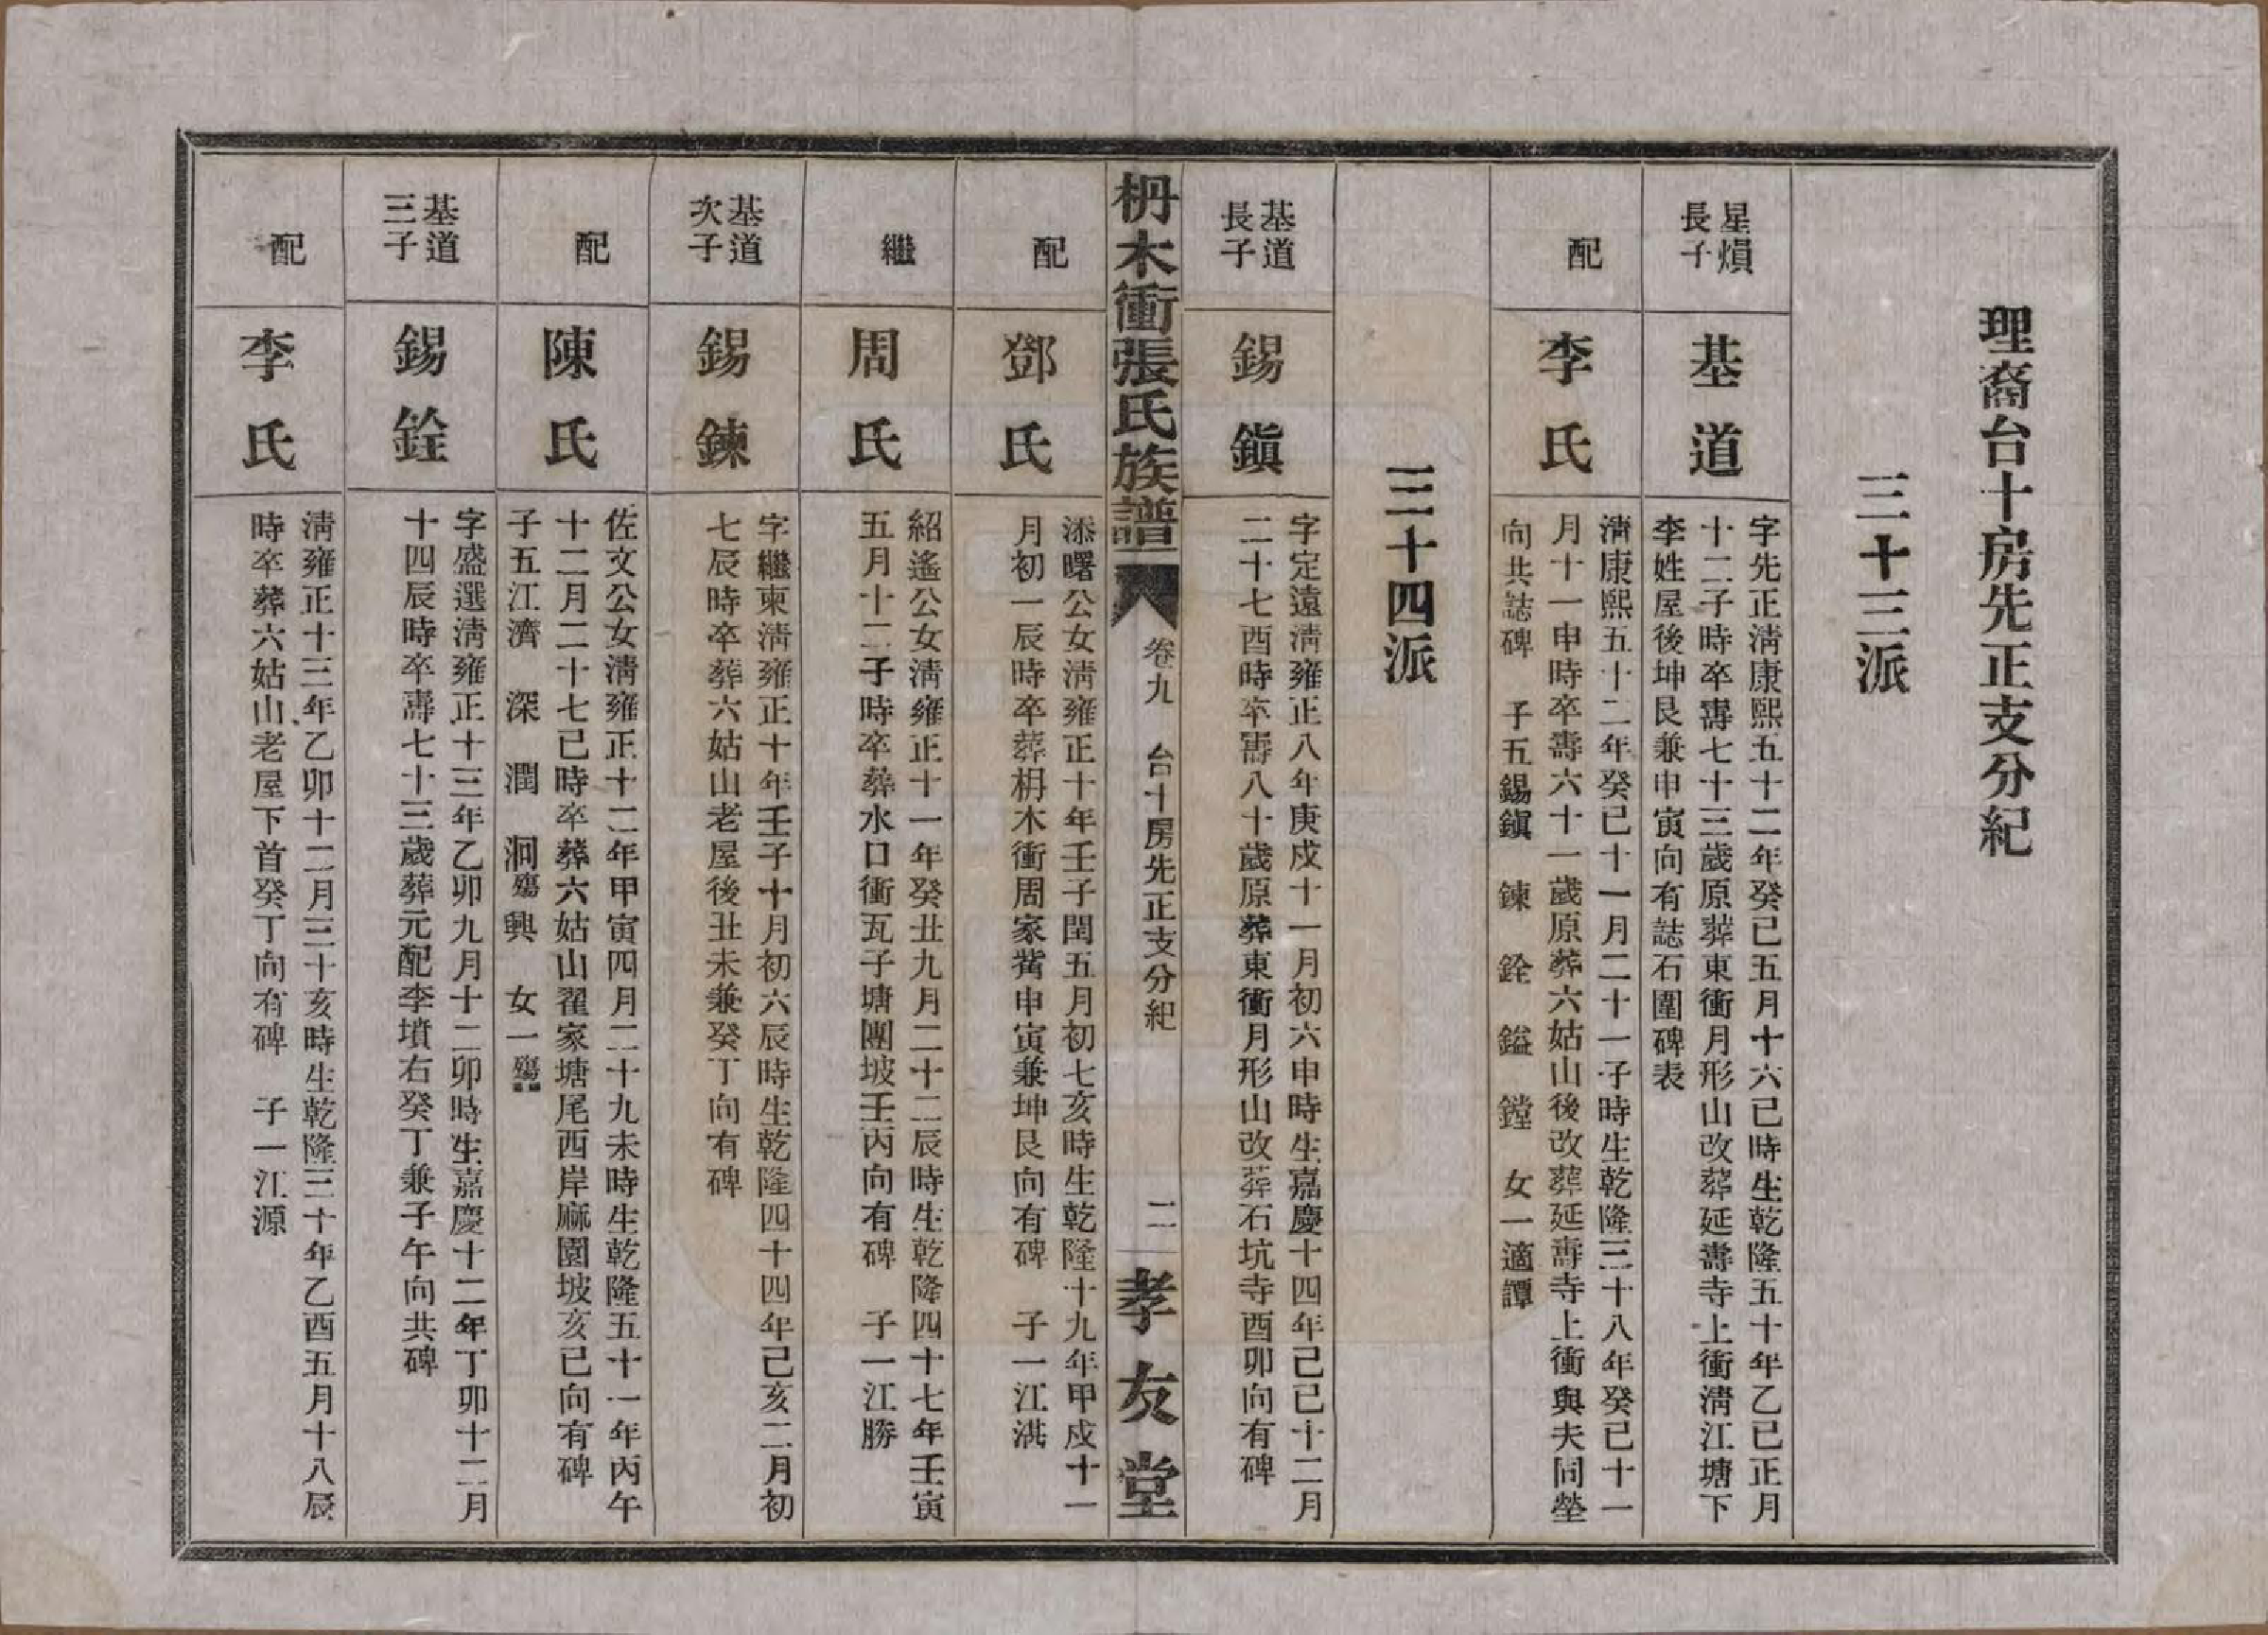 理裔台十房先正支分紀
三十三派
星熉
長子
基道
字先正淸康熙五十二年癸巳五月十六巳時生乾隆五十年乙巳正月
十二子時卒壽七十三歲原葬東衝月形山改葬延壽寺上衝淸江塘下
李姓屋後坤艮兼申寅向有誌石圍碑表
配
李氏
淸康熙五十二年癸巳十一月二十一子時生乾隆三十八年癸巳十一
月十一申時卒壽六十一歲原葬六姑山後改葬延壽寺上衝與夫同塋
向共誌碑 子五錫鎭 鍊 銓 鎰 鏜 女一適譚
三十四派
基道
長子
錫鎭
字定遠淸雍正八年庚戍十一月初六申時生嘉慶十四年己巳十二月
二十七酉時卒壽八十歲原葬東衝月形山改葬石坑寺酉卯向有碑
枬木衝張氏族譜
卷九 台十房先正支分紀
二
孝友堂
配
鄧氏
添曙公女淸雍正十年壬子閏五月初七亥時生乾隆十九年甲戍十一
月初一辰時卒葬枬木衝周家觜申寅兼坤艮向有碑 子一江淇
繼
周氏
紹遙公女淸雍正十一年癸丑九月二十二辰時生乾隆四十七年壬寅
五月十二子時卒葬水口衝瓦子塘團坡壬丙向有碑 子一江勝
基道
次子
錫鍊
字繼東淸雍正十年壬子十月初六辰時生乾隆四十四年己亥二月初
七辰時卒葬六姑山老屋後丑未兼癸丁向有碑
配
陳氏
佐文公女淸雍正十二年甲寅四月二十九未時生乾隆五十一年丙午
十二月二十七巳時卒葬六姑山翟家塘尾西岸麻園坡亥巳向有碑
子五江濟 深 潤 泂殤興 女一殤
基道
三子
錫銓
字盛選淸雍正十三年乙卯九月十二卯時生嘉慶十二年丁卯十二月
十四辰時卒壽七十三歲葬元配李墳右癸丁兼子午向共碑
配
李氏
淸雍正十三年乙卯十二月三十亥時生乾隆三十年乙酉五月十八辰
時卒葬六姑山老屋下首癸丁向有碑 子一江源